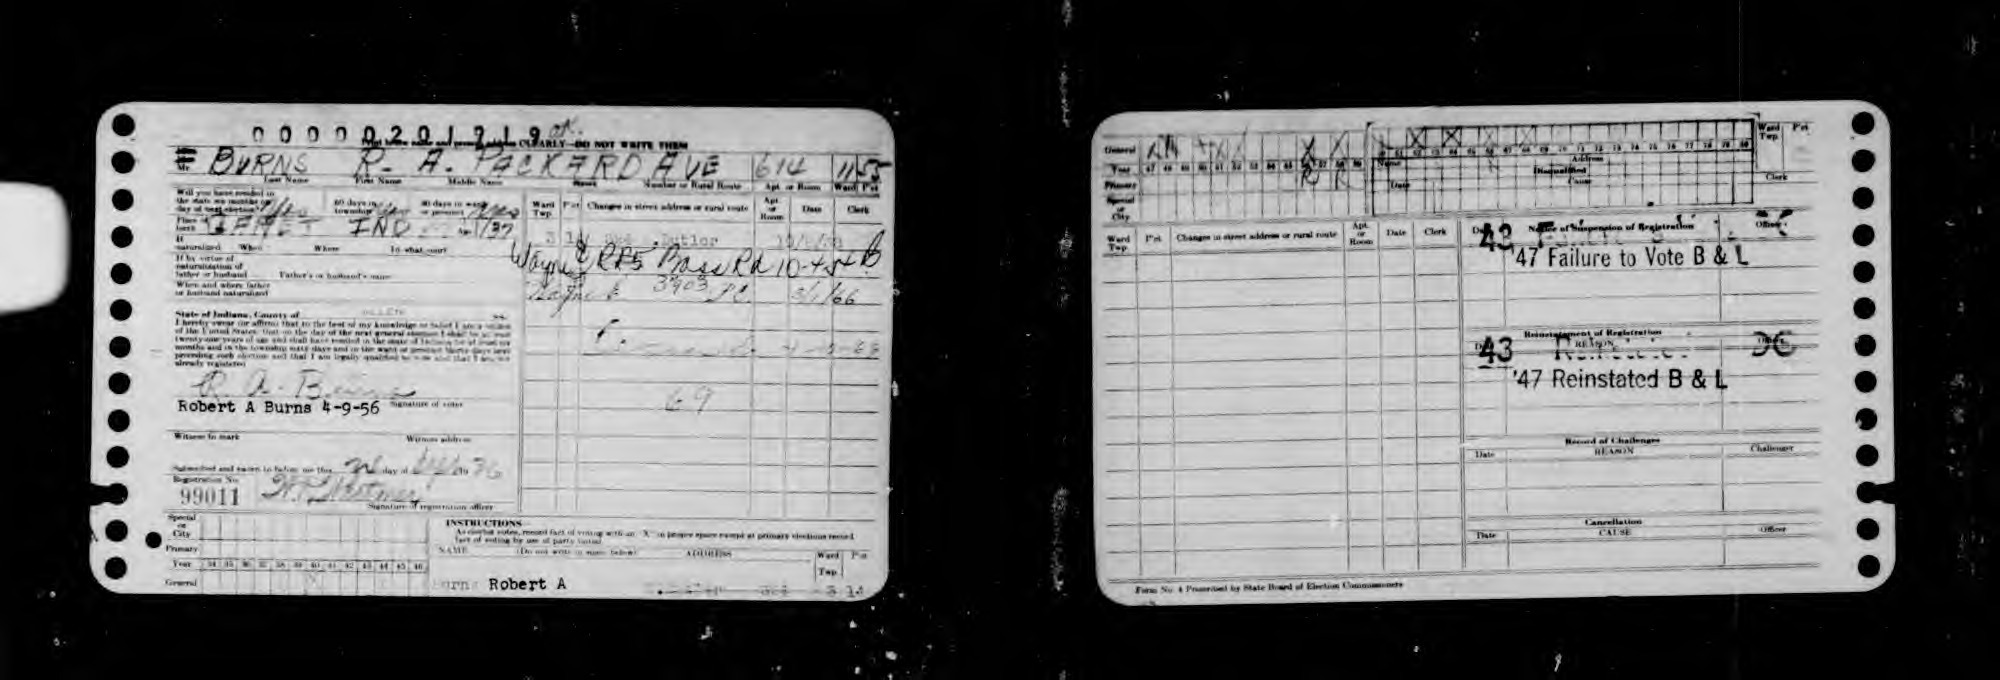 0 0 0 0 0 2 0 1 7 1 9 OK.
Print below name and present address CLEARLY—DO NOT WRITE THEM
Mr. BURNS R. A. PACKARD AVE 614 1155
Last Name First Name Middle Name Street Number or Rural Route Apt. or Room Ward Pct
Will you have resided in
the state six months on
day of next election? Yes
60 days in
township Yes
30 days in ward
or precinct Yes
Place of
birth IND
If
naturalized When Where In what court
If by virtue of
naturalization of
father or husband Father's or husband's name
When and where father
or husband naturalized
Ward
Twp. Pct Changes in street address or rural route Apt.
or
Room Date Clerk
3 14 Butler
Wayne RR5 Bass Rd 10-4-54 B
Wayne 3903 3/1/66
69
State of Indiana, County of ALLEN ss.
I hereby swear (or affirm) that to the best of my knowledge or belief I am a citizen
of the United States; that on the day of the next general election I shall be at least
twenty-one years of age and shall have resided in the state of Indiana for at least six
months and in the township sixty days and in the ward or precinct thirty days next
preceding such election and that I am legally qualified to vote and that I am not
already registered
R. A. Burns
Robert A Burns 4-9-56 Signature of voter
Witness to mark Witness address
Subscribed and sworn to before me this day of 19 36
Registration No.
99011
Signature of registration officer
Special
or
City
Primary
Year 34 35 36 37 38 39 40 41 42 43 44 45 46
General
INSTRUCTIONS
As elector votes, record fact of voting with an "X" in proper space except at primary elections record
fact of voting by use of party initial
NAME (Do not write in name below) ADDRESS Ward
Twp. Pct
Burns Robert A 3 14
General
Year 47 48 49 50 51 52 53 54 55 56 57 58 59
Primary R R
Special
or
City
60 61 62 63 64 65 66 67 68 69 70 71 72 73 74 75 76 77 78 79 80
Name Address
Disqualified
Date Cause
Ward
Twp. Pct
Clerk
Ward
Twp. Pct Changes in street address or rural route Apt.
or
Room Date Clerk
Date Notice of Suspension of Registration Officer
43
'47 Failure to Vote B & L
Reinstatement of Registration
REASON
43
'47 Reinstated B & L
Record of Challenges
Date REASON Challenger
Cancellation
Date CAUSE Officer
Form No. 4 Prescribed by State Board of Election Commissioners